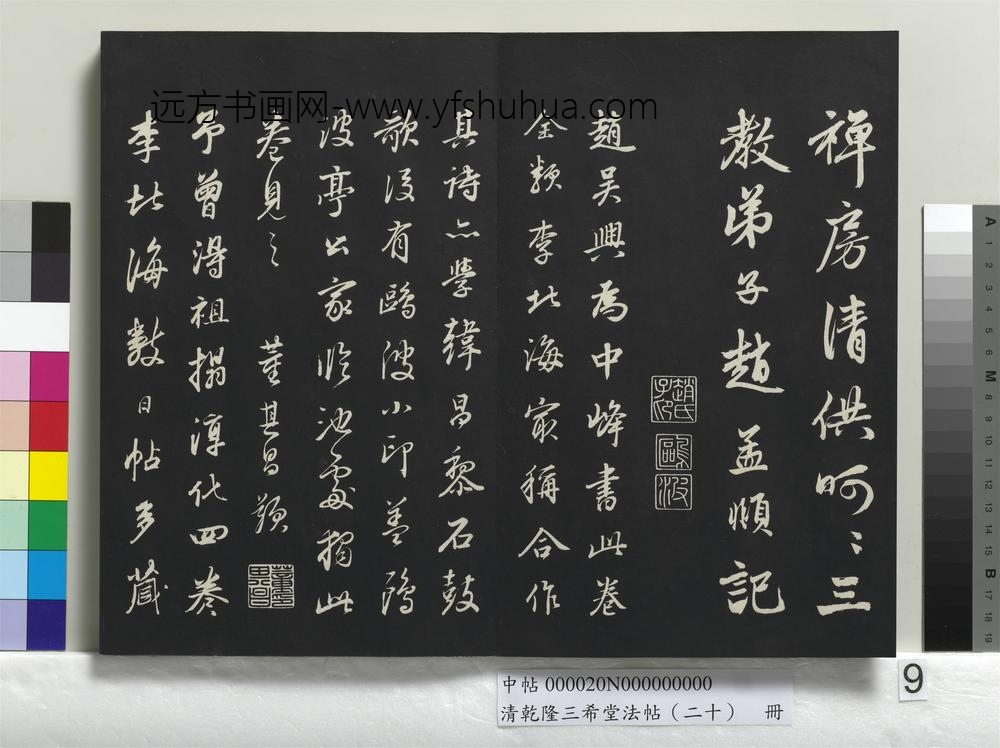 禅房清供呵〻三
教弟子趙孟頫記
趙氏子印
鷗波
趙吳興為中峰書此卷
全類李北海最稱合作
其詩亦學韓昌黎石鼓
歌後有鷗波小印蓋鷗
波亭公家臨池處獨此
卷見之 董其昌題
予曾得祖搨淳化四卷
李北海數日帖多藏
远方书画网-www.yfshuhua.com
中帖 000020N000000000
清乾隆三希堂法帖（二十） 冊
9
A 1 2 3 4 5 6 M 8 9 10 11 12 13 14 15 B 17 18 19